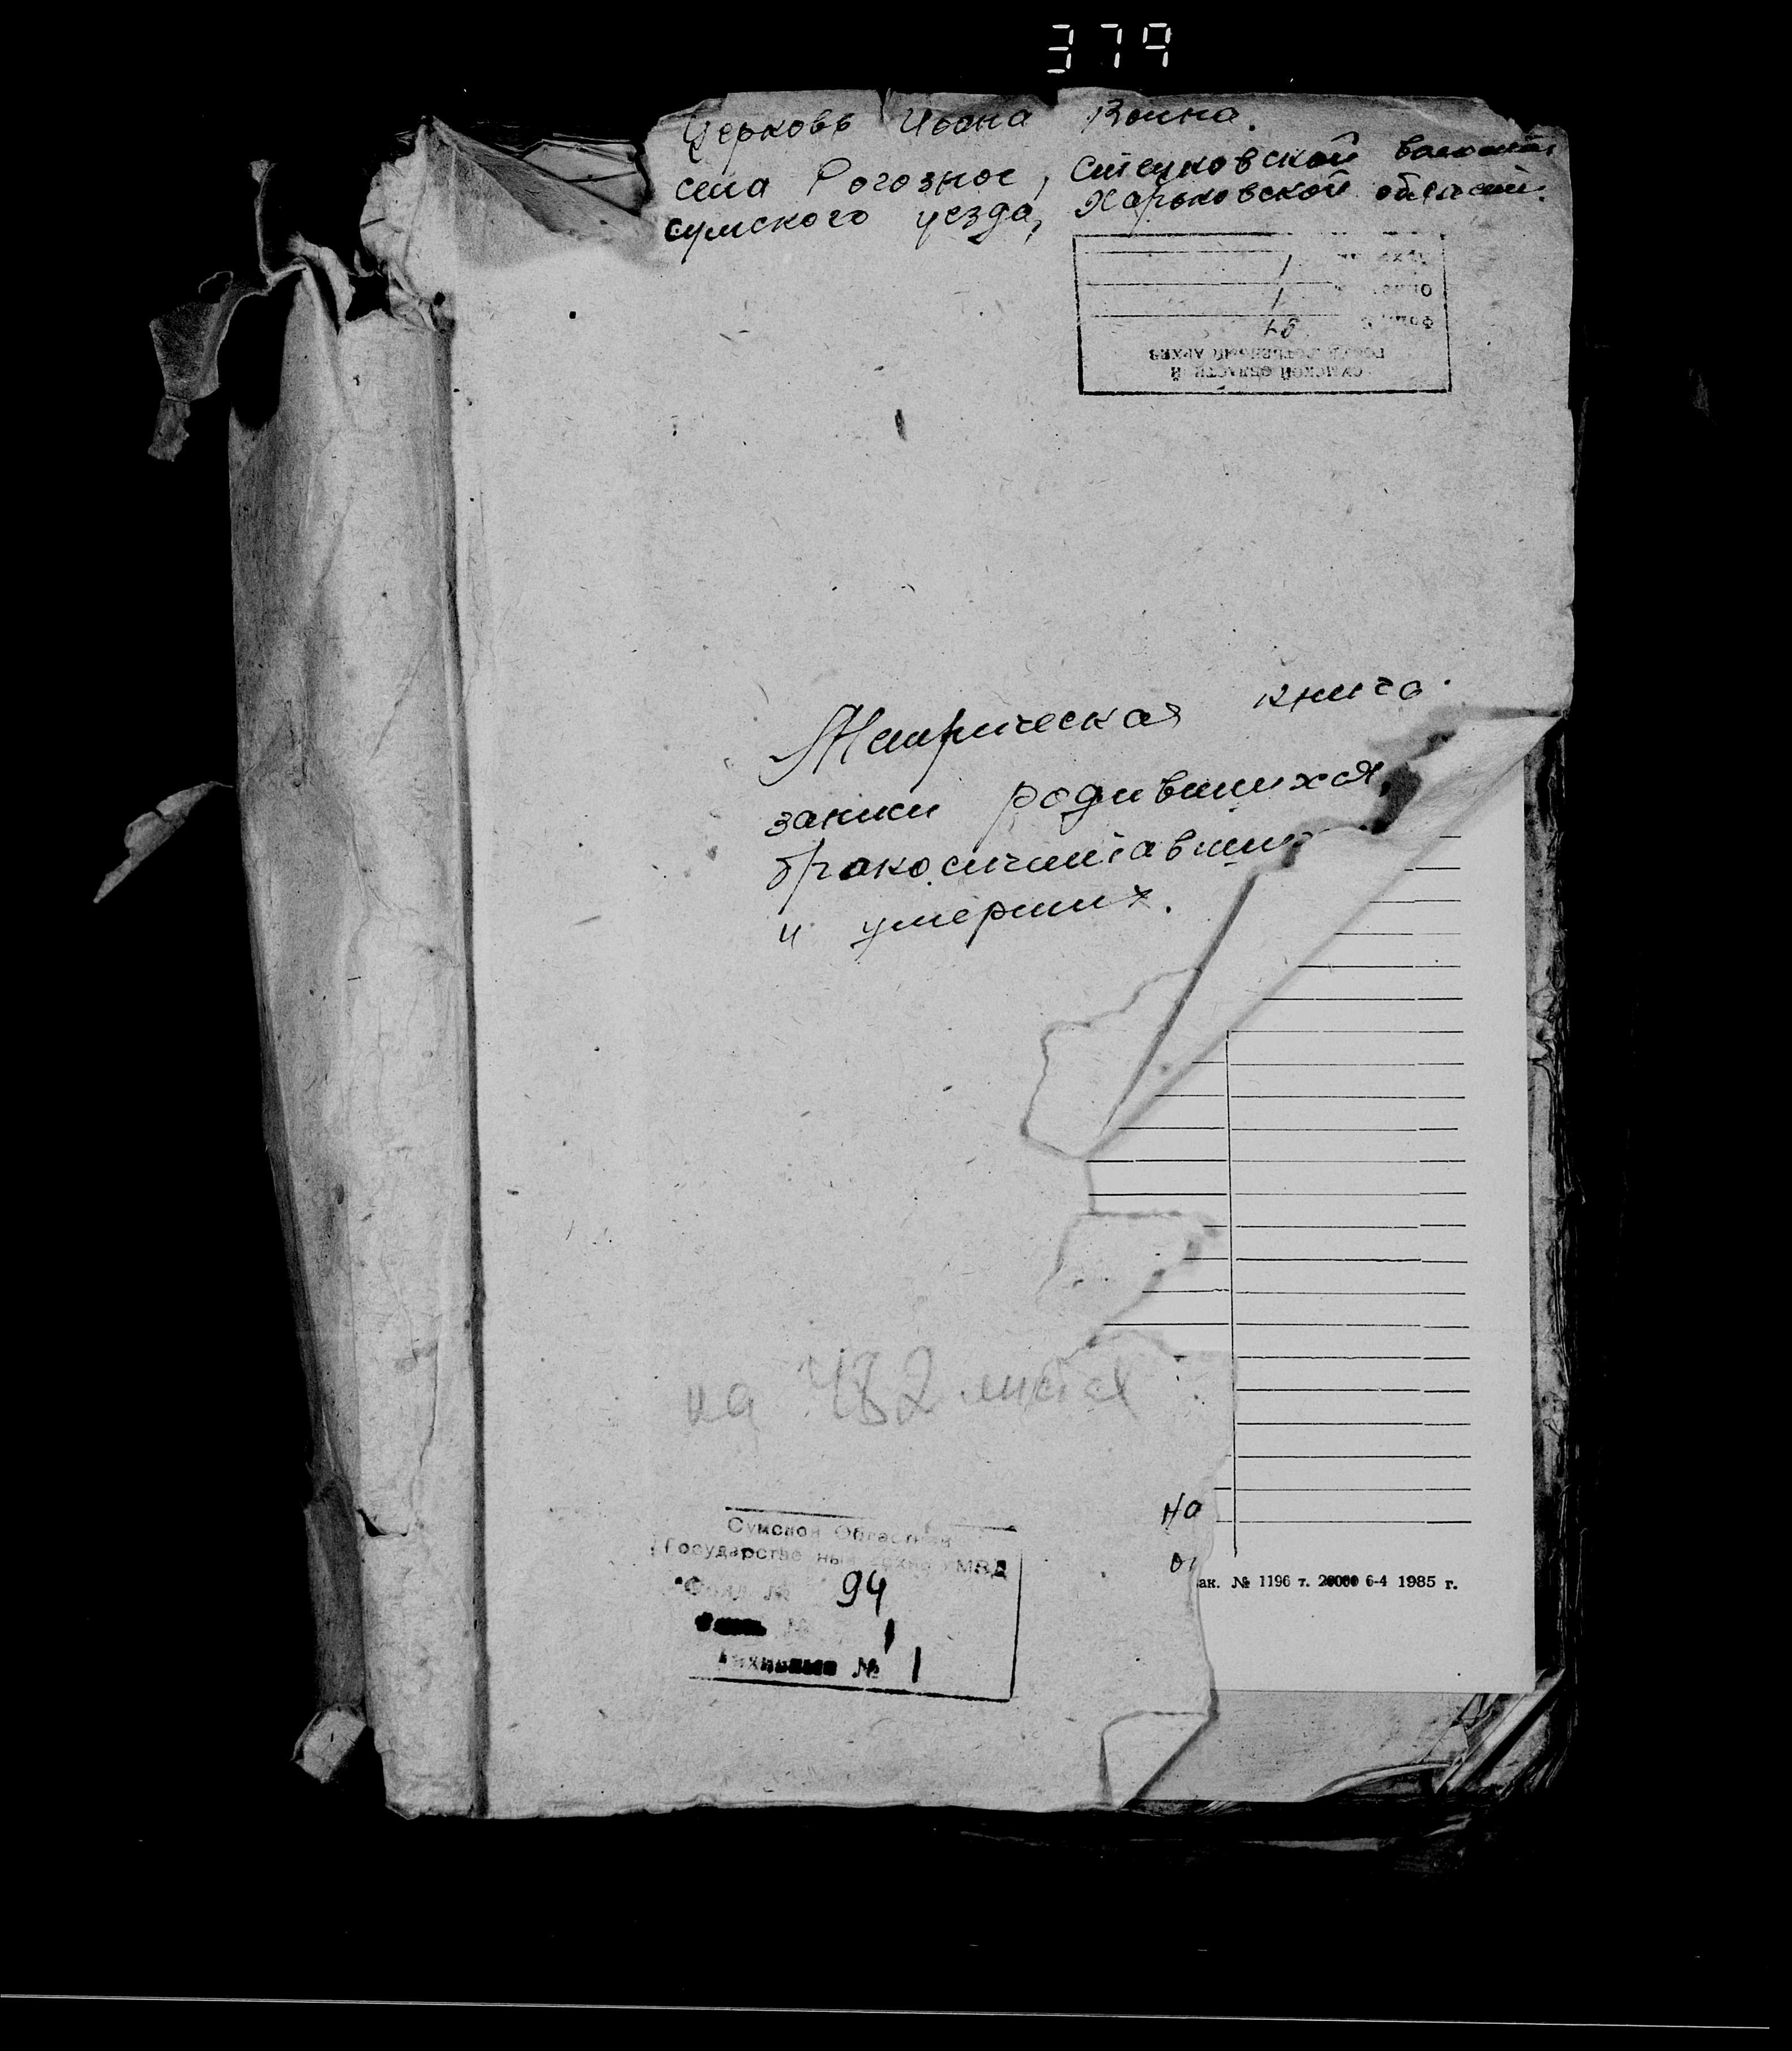 379
Церковь Иоана Воина.
села Рогозное, Стецковской волости
сумского уезда, Харьковской области.
СУМСКОЙ ОБЛАСТНОЙ
ГОСУДАРСТВЕННЫЙ АРХИВ
Фонд
Опись 1
1
Метрическая книга
записи родившихся,
бракосочитавших
и умерших.
на 482 листах
Сумской Областной
Государственный архив УМВД
Фонд № 94
Опись № 1
Архивный № 1
на
ак. № 1196 т. 20000 6-4 1985 г.